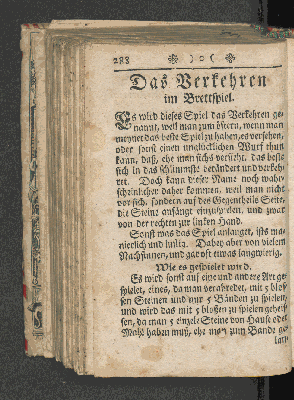 288 ❉ ) o ( ❉
Das Verkehren
im Brettspiel.
Es wird dieses Spiel das Verkehren ge-
nannt, weil man zum öftern, wenn man
meynet das beste Spiel zu haben, es versehen,
oder sonst einen unglücklichen Wurf thun
kann, daß, ehe man sichs versieht, das beste
sich in das schlimmste verändert und verkeh-
ret. Doch kann dieser Name noch wahr-
scheinlicher daher kommen, weil man nicht
vor sich, sondern auf des Gegentheils Seite,
die Steine anfängt einzuspielen, und zwar
von der rechten zur linken Hand.
Sonst was das Spiel anlanget, ists ma-
nierlich und lustig. Dabey aber von vielem
Nachsinnen, und gar oft etwas langwierig.
Wie es gespielet wird.
Es wird sonst auf eine und andere Art ge-
spielet, eines, da man verabredet, mit 5 blos-
sen Steinen und nur 5 Bänden zu spielen,
und wird das mit 5 bloßen zu spielen geheis-
sen, da man 5 einzele Steine von Hause oder
Mahl haben muß, ehe man zum Bande ge-
lan-